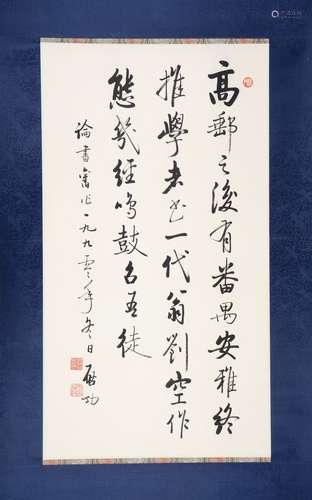 高郵之後有番禺安雅終
推學者𠀋一代翁劉空作
態幾經鳴鼓召吾徒
論書舊作一九九零年冬日 啟功